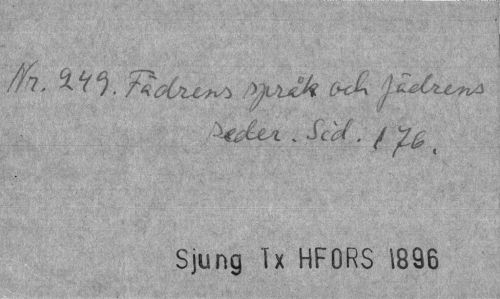 Nr. 249. Fädrens språk och fädrens
seder. Sid. 176.
Sjung Tx HFORS 1896